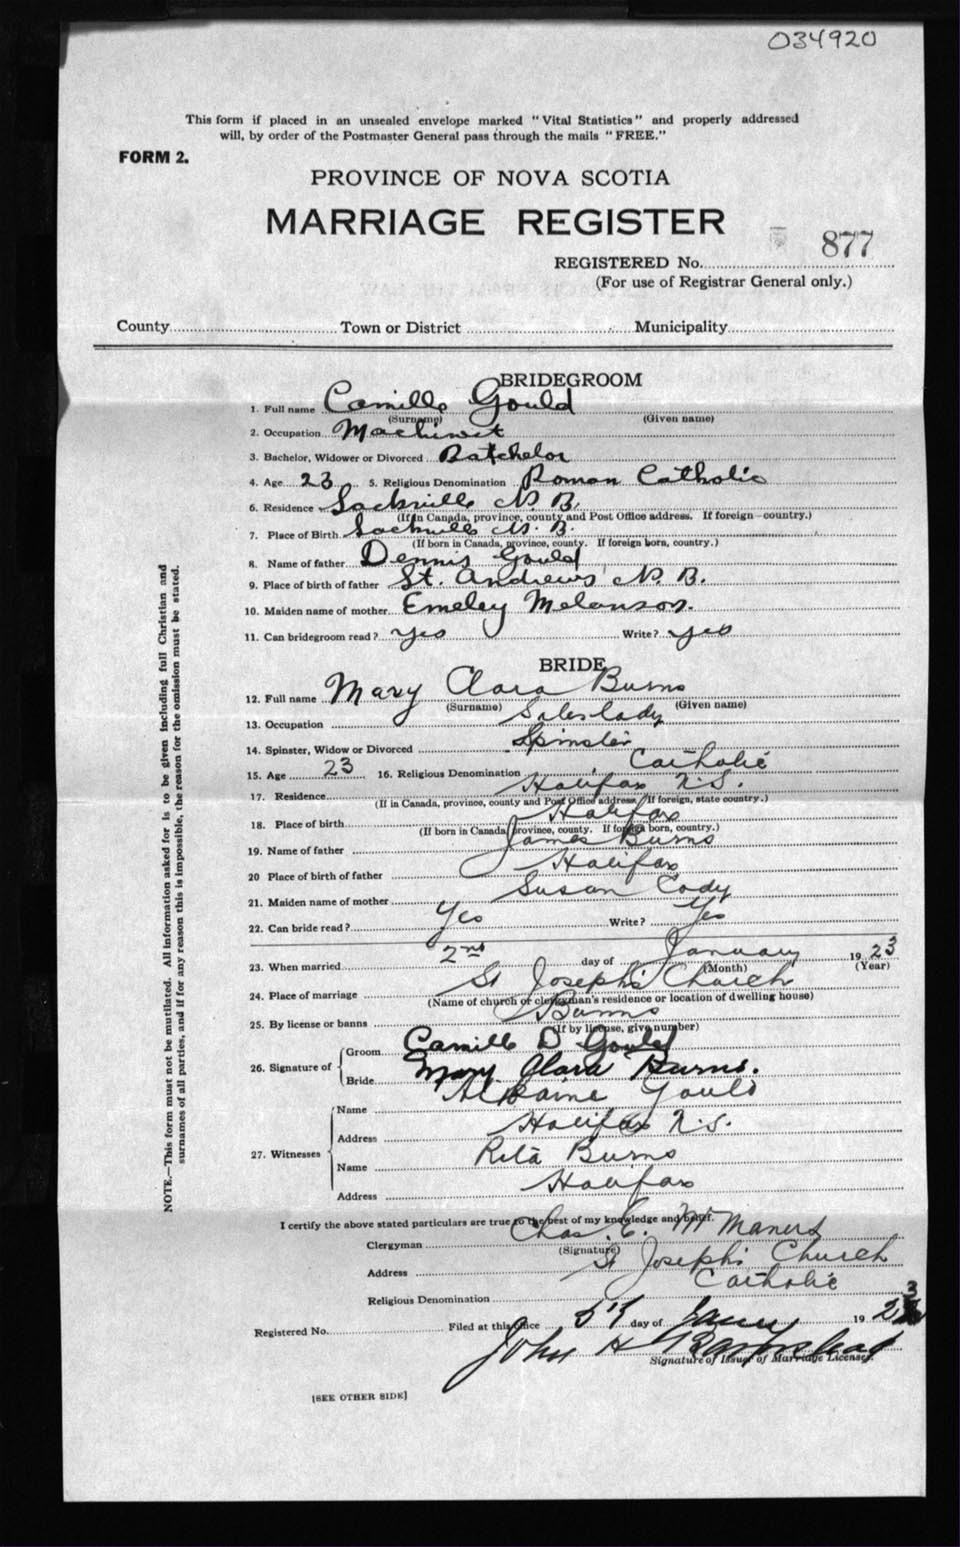 034920
This form if placed in an unsealed envelope marked "Vital Statistics" and properly addressed
will, by order of the Postmaster General pass through the mails "FREE."
FORM 2.
PROVINCE OF NOVA SCOTIA
MARRIAGE REGISTER
877
REGISTERED No.
(For use of Registrar General only.)
County Town or District Municipality
BRIDEGROOM
1. Full name Camille Gould
(Surname) (Given name)
2. Occupation Machinist
3. Bachelor, Widower or Divorced Batchelor
4. Age 23 5. Religious Denomination Roman Catholic
6. Residence Sackville N. B.
(If in Canada, province, county and Post Office address. If foreign—country.)
7. Place of Birth Sackville N. B.
(If born in Canada, province, county. If foreign born, country.)
8. Name of father Dennis Gould
9. Place of birth of father St. Andrews N. B.
10. Maiden name of mother Emeley Melanson.
11. Can bridegroom read? yes Write? yes
BRIDE
12. Full name Mary Clara Burns
(Surname) (Given name)
13. Occupation Saleslady
14. Spinster, Widow or Divorced Spinster
15. Age 23 16. Religious Denomination Catholic
17. Residence Halifax N.S.
(If in Canada, province, county and Post Office address. If foreign, state country.)
18. Place of birth Halifax
(If born in Canada, province, county. If foreign born, country.)
19. Name of father James Burns
20 Place of birth of father Halifax
21. Maiden name of mother Susan Cody
22. Can bride read? Yes Write? Yes
23. When married 2nd day of January 1923
(Month) (Year)
24. Place of marriage St Joseph's Church
(Name of church or clergyman's residence or location of dwelling house)
25. By license or banns Banns
(If by license, give number)
26. Signature of Groom Camille D Gould
Bride Mary Clara Burns.
27. Witnesses Name Gould
Address Halifax N.S.
Name Rita Burns
Address Halifax
I certify the above stated particulars are true to the best of my knowledge and belief.
Clergyman Chas. E.
(Signature)
Address St Joseph's Church
Religious Denomination Catholic
Registered No. Filed at this office day of 1923
John H
Signature of Issuer of Marriage Licenses.
[SEE OTHER SIDE]
NOTE.—This form must not be mutilated. All information asked for is to be given including full Christian and
surnames of all parties, and if for any reason this is impossible, the reason for the omission must be stated.